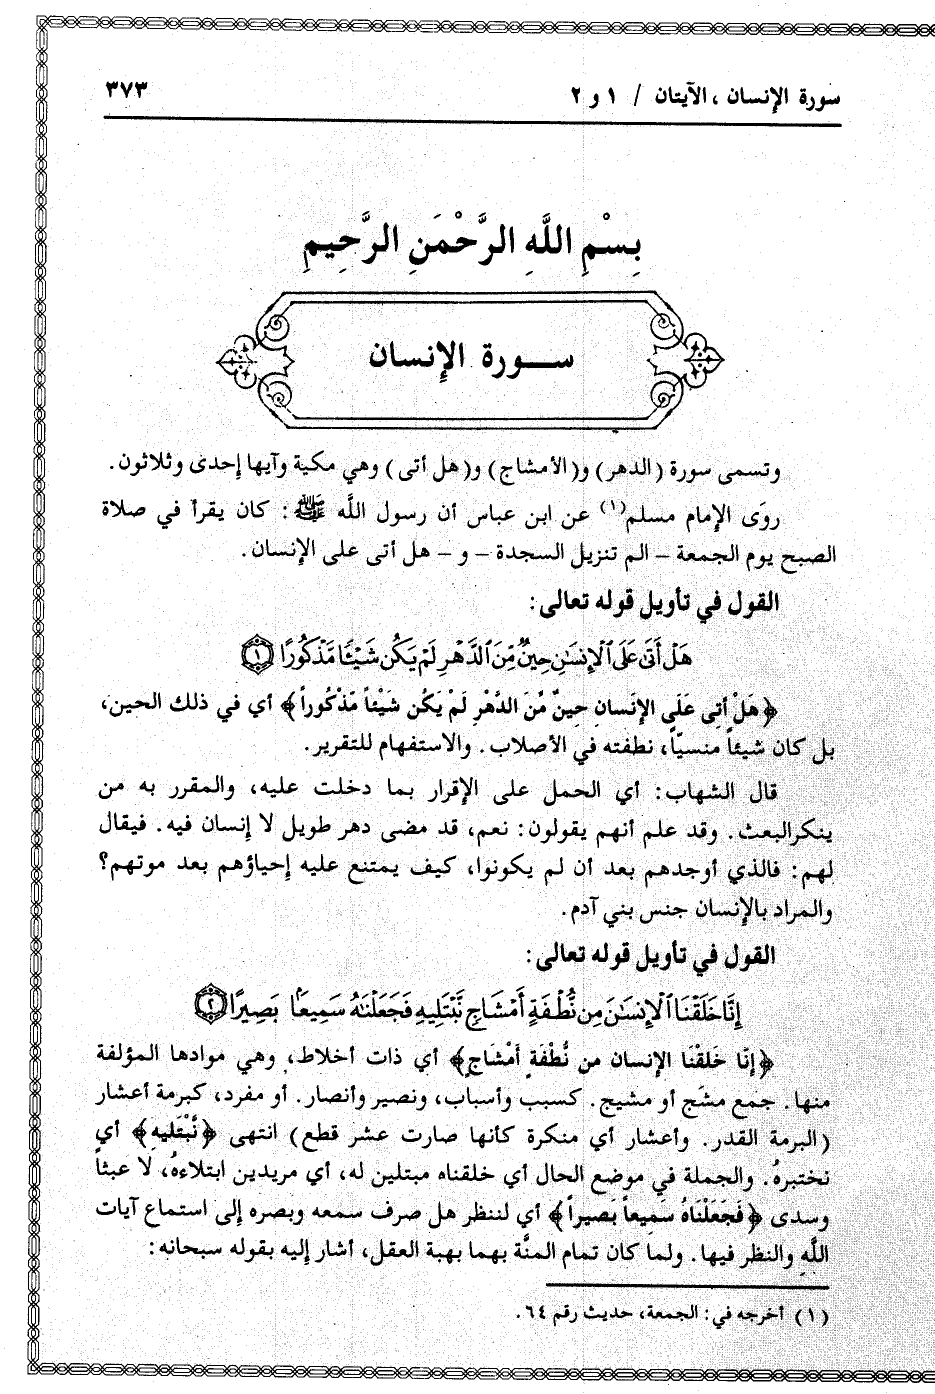 سورة الإنسان ، الآيتان / ١ و ٢ ٣٧٣
بِسْمِ اللَّهِ الرَّحْمَنِ الرَّحِيمِ
سـورة الإنسان
وتسمى سورة (الدهر) و(الأمشاج) و(هل أتى) وهي مكية وآيها إحدى وثلاثون.
روَى الإمام مسلم(١) عن ابن عباس أن رسول اللَّه ﷺ: كان يقرأ في صلاة
الصبح يوم الجمعة – الم تنزيل السجدة – و – هل أتى على الإنسان.
القول في تأويل قوله تعالى:
هَلْ أَتَىٰ عَلَى ٱلْإِنسَٰنِ حِينٌ مِّنَ ٱلدَّهْرِ لَمْ يَكُن شَيْـًٔا مَّذْكُورًا ١
﴿هَلْ أَتى عَلَى الإنَسانِ حِينٌ مَّنَ الدَّهْرِ لَمْ يَكُن شَيْئاً مَذْكوراً﴾ أي في ذلك الحين،
بل كان شيئاً منسيّاً، نطفته في الأصلاب. والاستفهام للتقرير.
قال الشهاب: أي الحمل على الإقرار بما دخلت عليه، والمقرر به من
ينكرالبعث. وقد علم أنهم يقولون: نعم، قد مضى دهر طويل لا إنسان فيه. فيقال
لهم: فالذي أوجدهم بعد أن لم يكونوا، كيف يمتنع عليه إحياؤهم بعد موتهم؟
والمراد بالإنسان جنس بني آدم.
القول في تأويل قوله تعالى:
إِنَّا خَلَقْنَا ٱلْإِنسَٰنَ مِن نُّطْفَةٍ أَمْشَاجٍ نَّبْتَلِيهِ فَجَعَلْنَٰهُ سَمِيعًۢا بَصِيرًا ٢
﴿إنّا خَلقْنَا الإنسان من نُّطْفَةٍ أَمْشَاجٍ﴾ أي ذات أخلاط، وهي موادها المؤلفة
منها. جمع مشَج أو مشيج. كسبب وأسباب، ونصير وأنصار. أو مفرد، كبرمة أعشار
(البرمة القدر. وأعشار أي منكرة كأنها صارت عشر قطع) انتهى ﴿نَّبْتَليه﴾ أي
نختبرهُ. والجملة في موضع الحال أي خلقناه مبتلين له، أي مريدين ابتلاءهُ، لا عبثاً
وسدى ﴿فَجَعَلْنَاهُ سَميعاً بَصيراً﴾ أي لننظر هل صرف سمعه وبصره إلى استماع آيات
اللَّه والنظر فيها. ولما كان تمام المنَّة بهما بهبة العقل، أشار إليه بقوله سبحانه:
(١) أخرجه في: الجمعة، حديث رقم ٦٤.